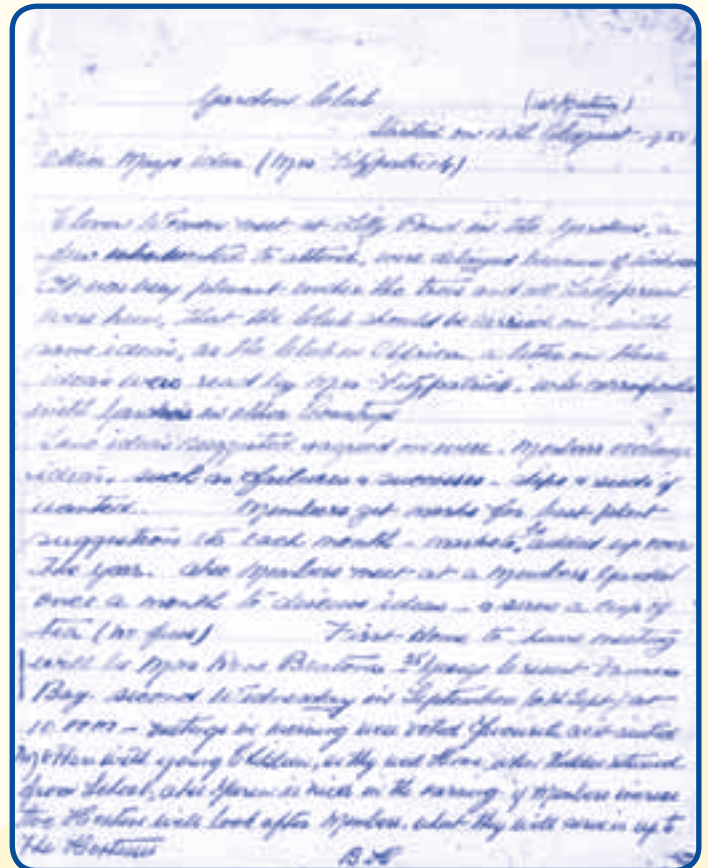 Garden Club (1st Meeting)
Started on 12th August
(Mrs Fitzpatrick)
Eleven Women meet at Lilly Pond in the Gardens, a
few who wanted to attend, were delayed because of
It was very pleasant under the trees and all Ladies present
were keen, that the Club should be carried on, with
same ideas, as the Club in a letter on these
ideas were read by Mrs Fitzpatrick, who corresponds
with Gardens in other Countrys
Some ideas suggested & agreed on were. Members exchange
ideas, such as failures & successes - slips & seeds if
wanted. Members get marks for best plant
suggestions etc each month - marks to be added up over
the year. Also Members meet at a Members Garden
once a month to discuss ideas - & serve a cup of
tea (no fuss) First Home to have meeting
will be Mrs Bentons 25 Crescent
Bay second Wednesday in September Sept) at
10 AM - meetings in morning was voted favourable suited
Mothers with young Children, as they are Home, when Kiddies return
from School, also Garden is nicer in the morning, if Members increase
two Hostess will look after Members, what they will serve is up to
the Hostesses
B H